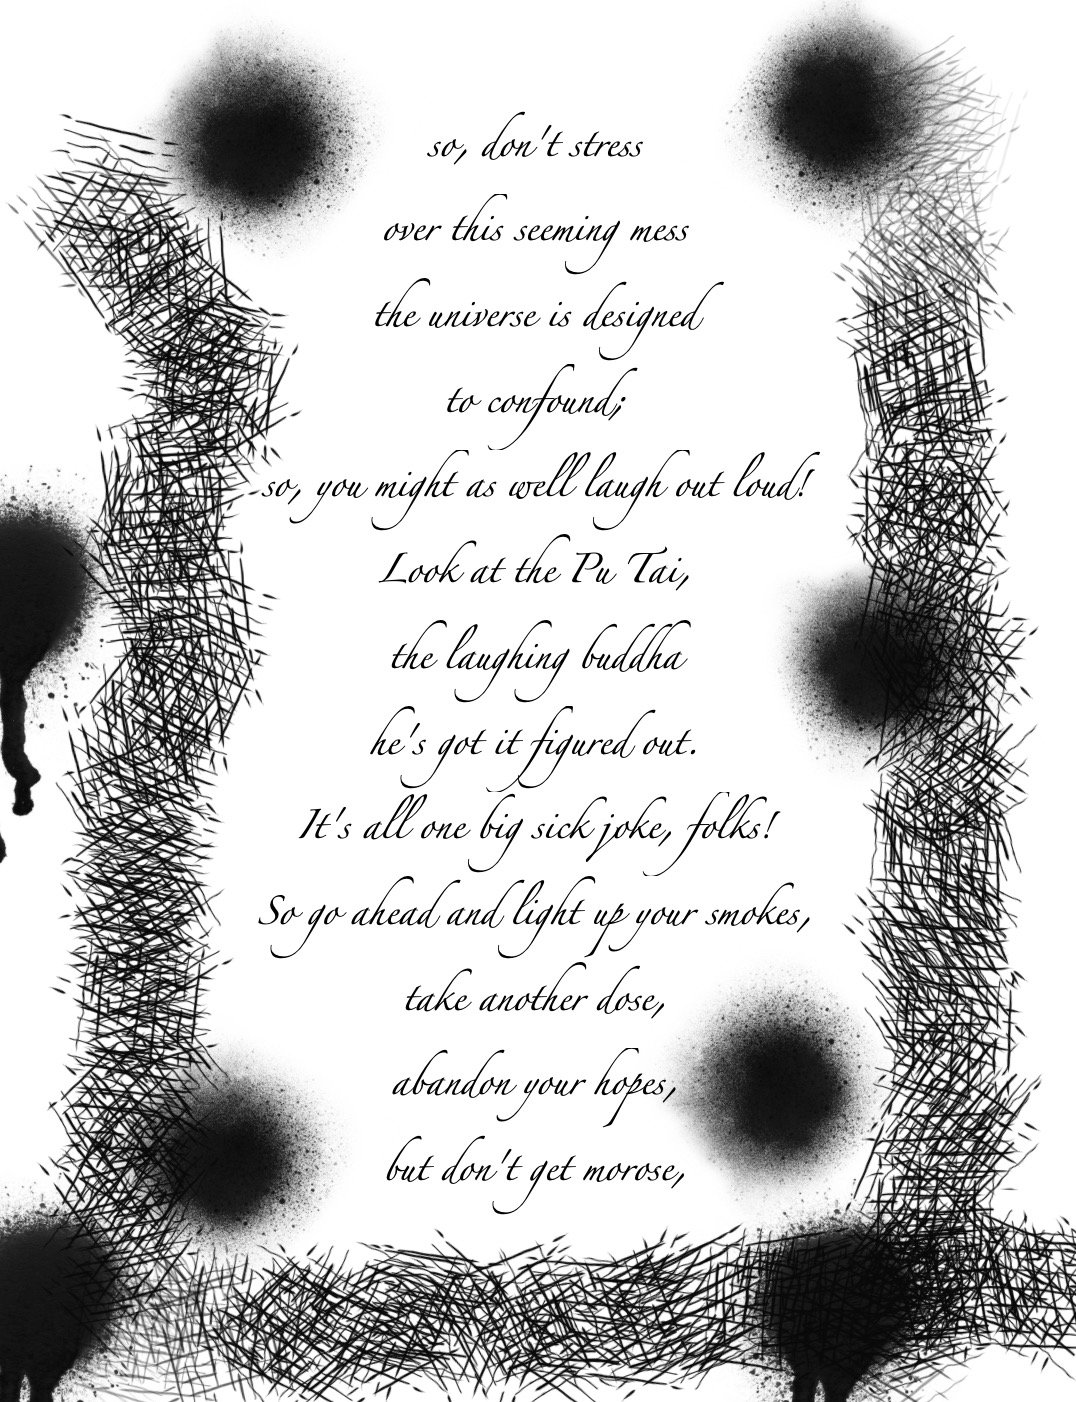 so, don't stress
over this seeming mess
the universe is designed
to confound;
so, you might as well laugh out loud!
Look at the Pu Tai,
the laughing buddha
he's got it figured out.
It's all one big sick joke, folks!
So go ahead and light up your smokes,
take another dose,
abandon your hopes,
but don't get morose,